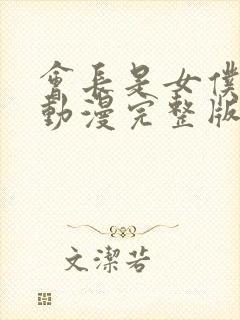 會長是女僕
動漫完整版
文潔若